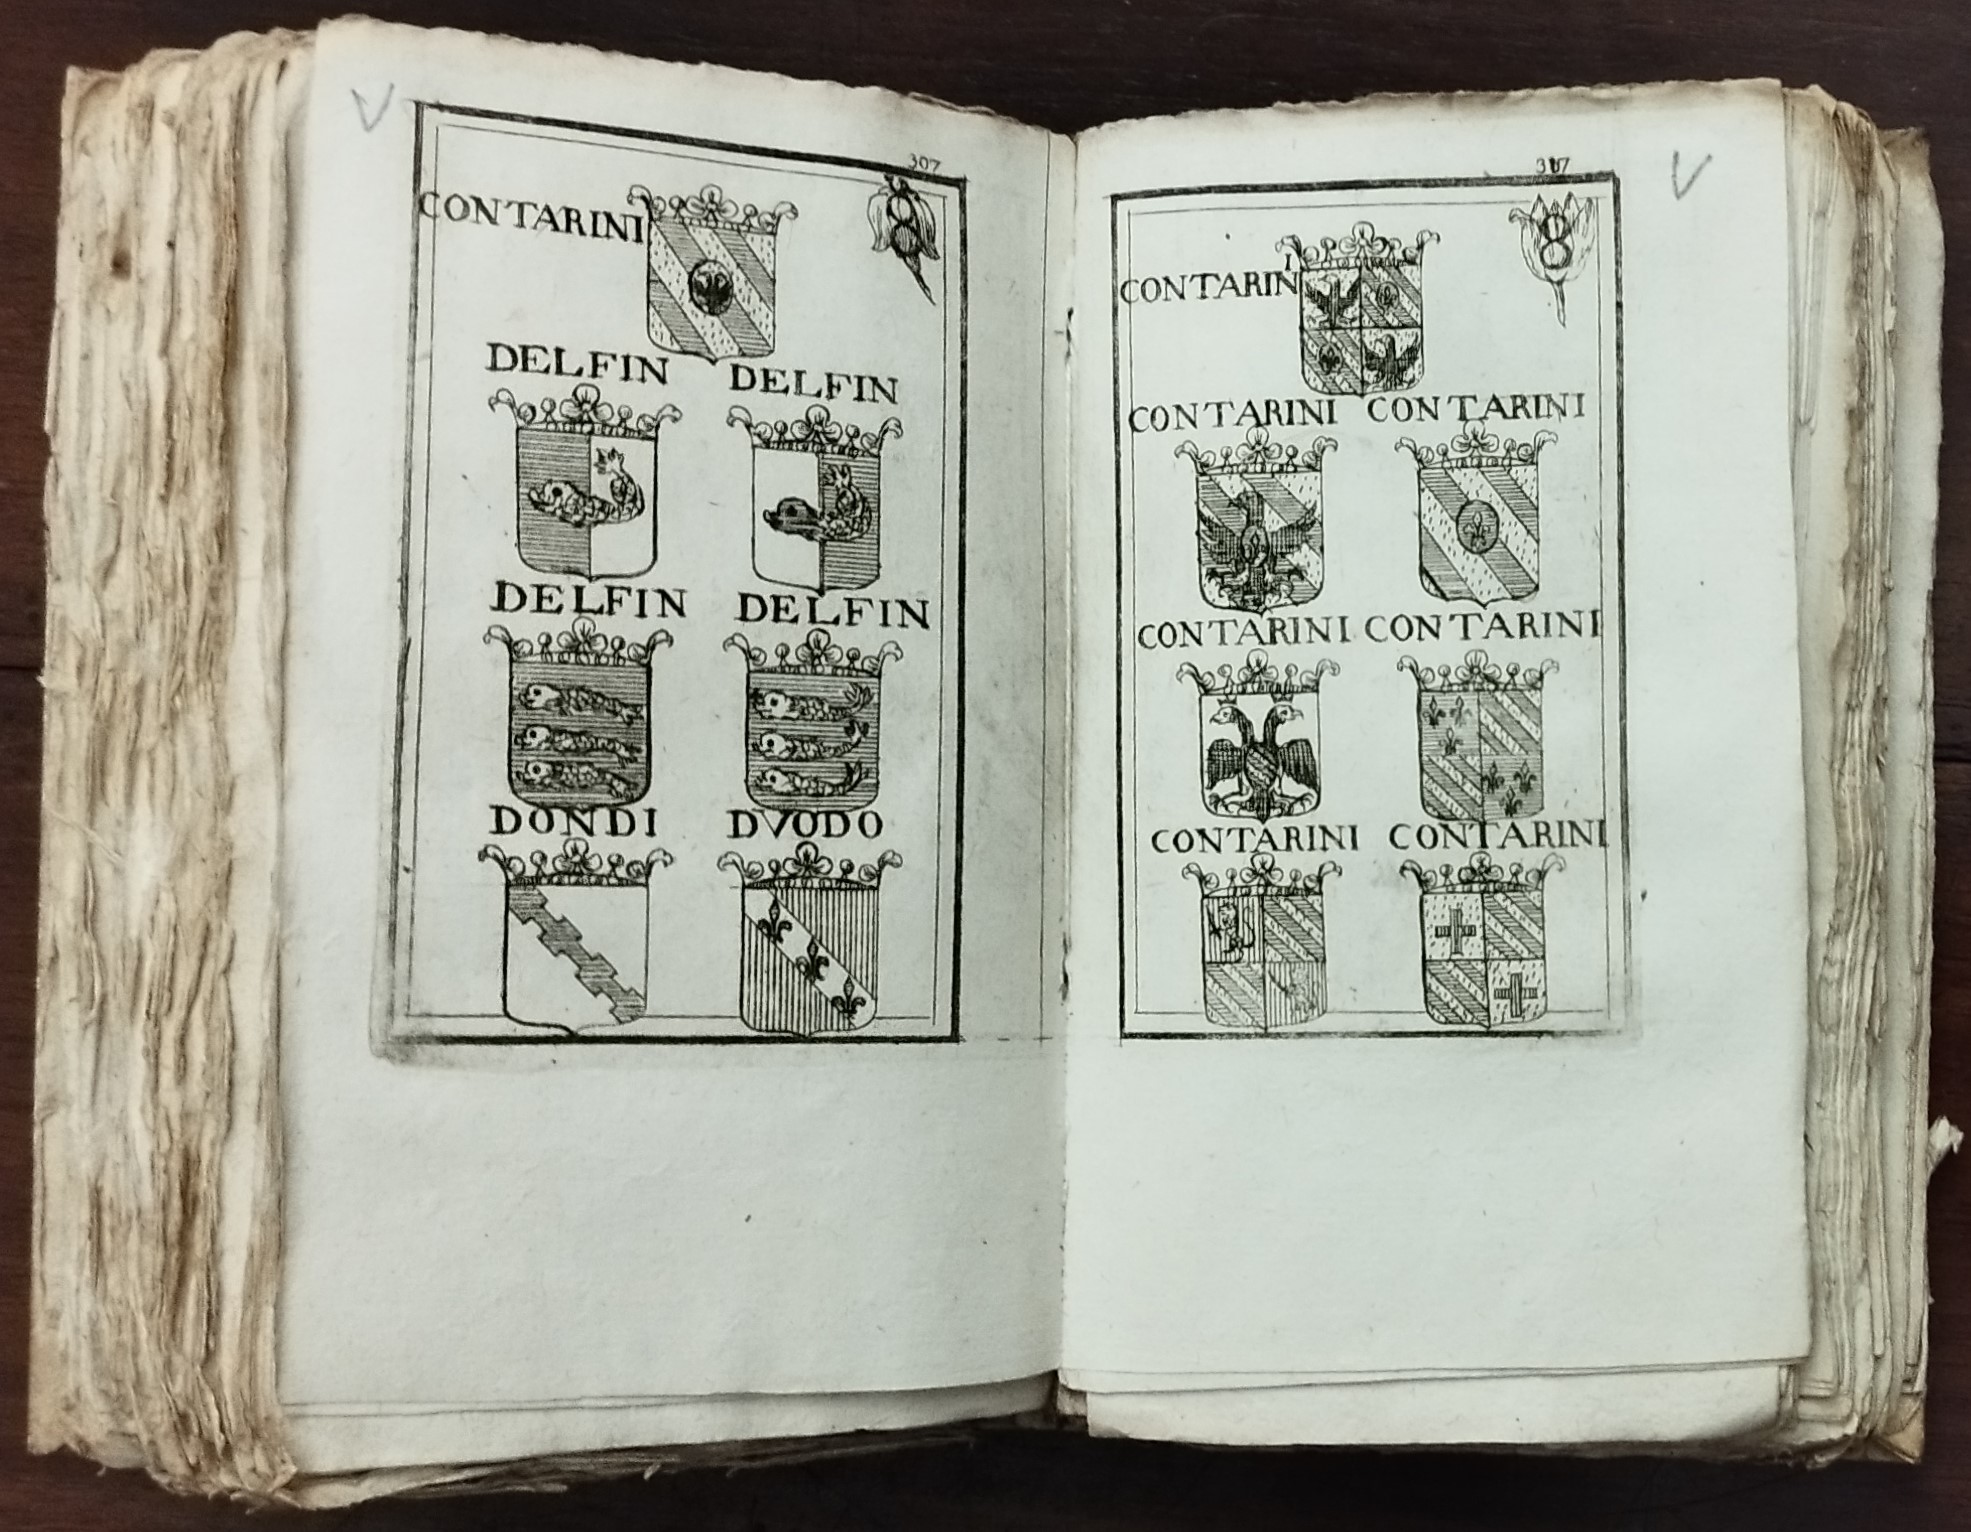 307
8
CONTARINI
DELFIN DELFIN
DELFIN DELFIN
DONDI DVODO
8
CONTARINI
CONTARINI CONTARINI
CONTARINI CONTARINI
CONTARINI CONTARINI